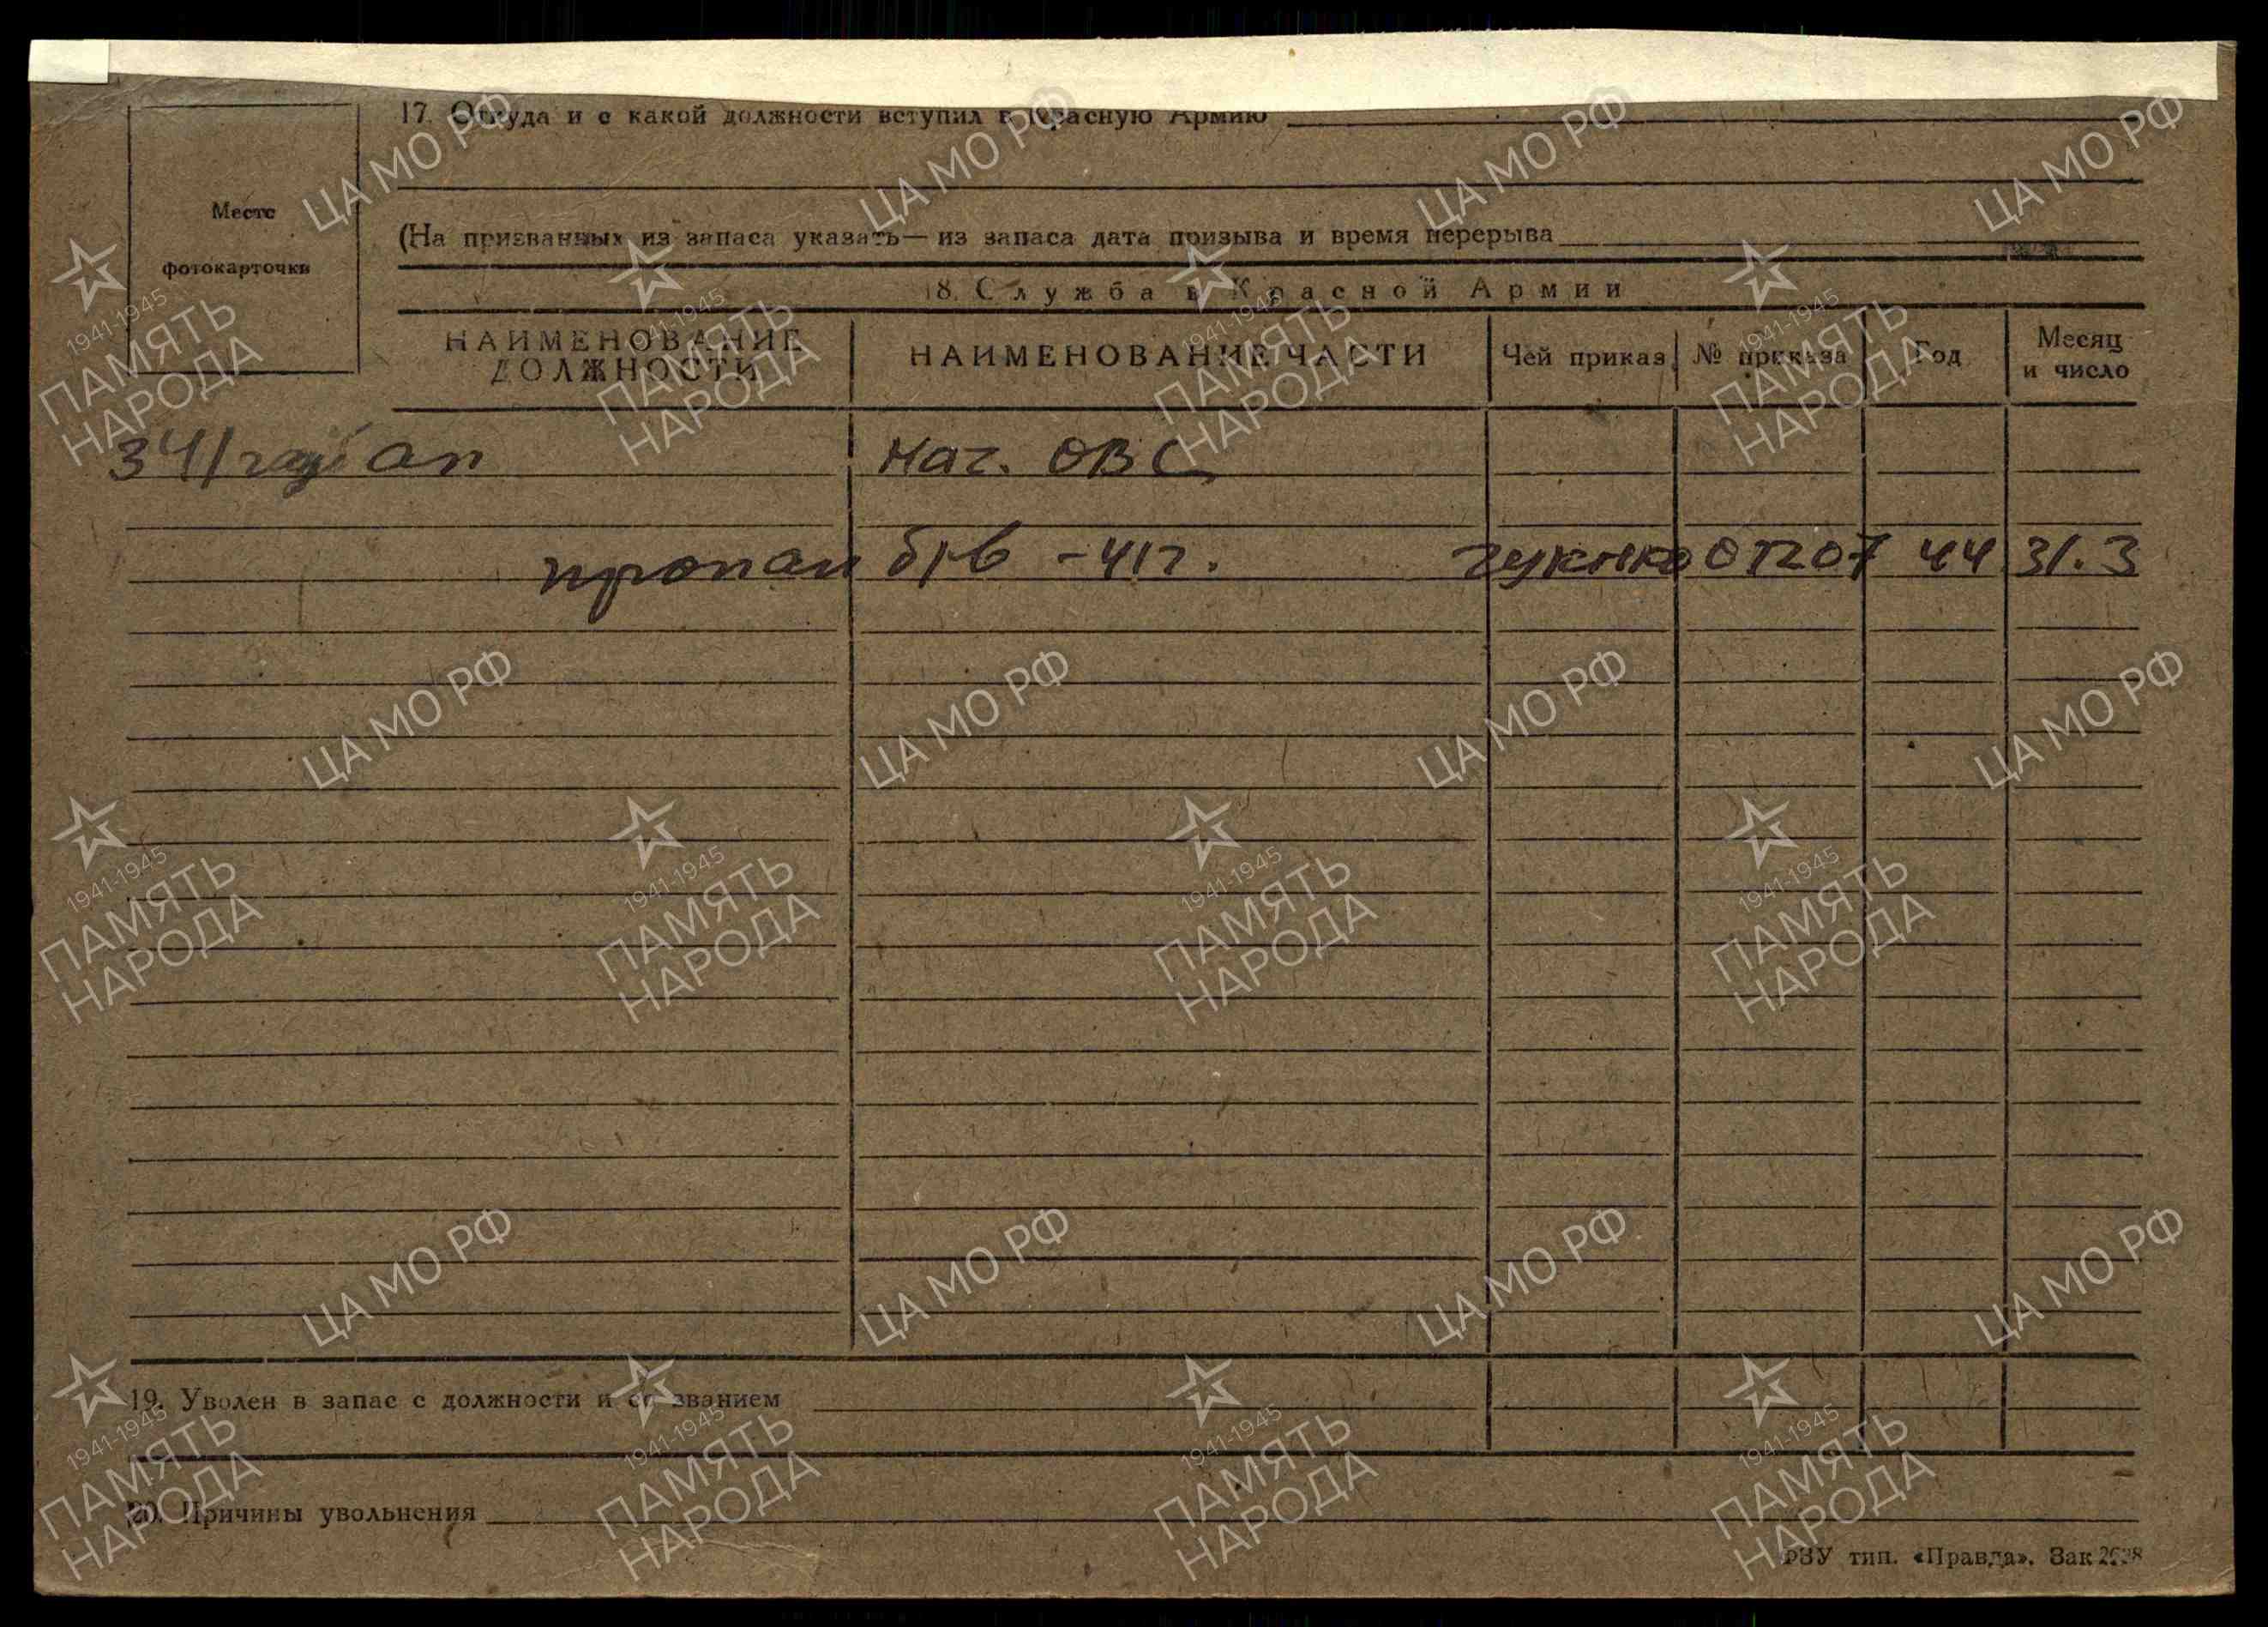 17. Откуда и с какой должности вступил в Красную Армию
Место
фотокарточки
(На призванных из запаса указать — из запаса дата призыва и время перерыва
18. Служба в Красной Армии
НАИМЕНОВАНИЕ ДОЛЖНОСТИ
НАИМЕНОВАНИЕ ЧАСТИ
Чей приказ
№ приказа
Год
Месяц и число
341 ап Нач. ОВС
пропал б/в - 41г. гукнко 01207 44 31.3
19. Уволен в запас с должности и со званием
20. Причины увольнения
тип. «Правда». Зак
ЦА МО РФ
1941-1945
ПАМЯТЬ
НАРОДА